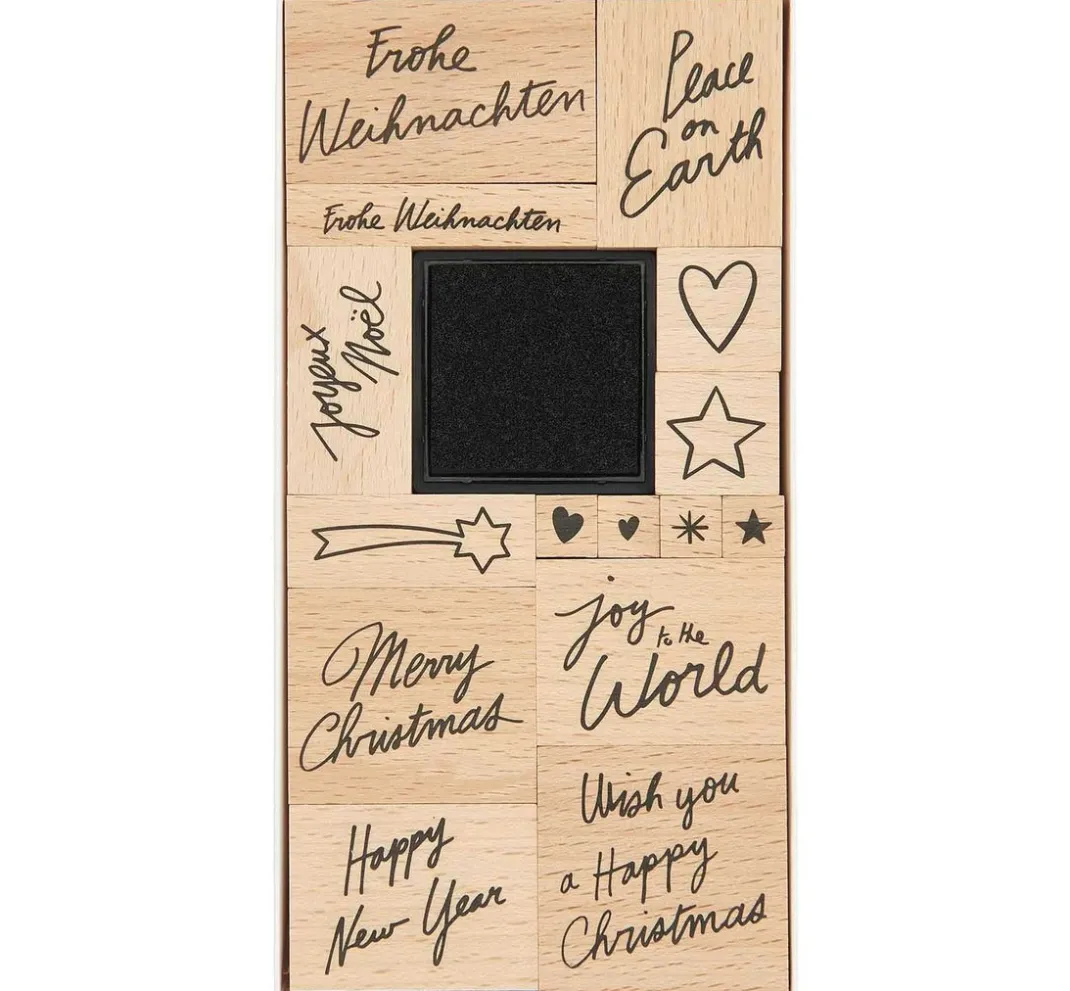 Frohe
Weihnachten
Peace
on
Earth
Frohe Weihnachten
Joyeux
Noël
Merry
Christmas
joy
to the
World
Happy
New Year
Wish you
a Happy
Christmas